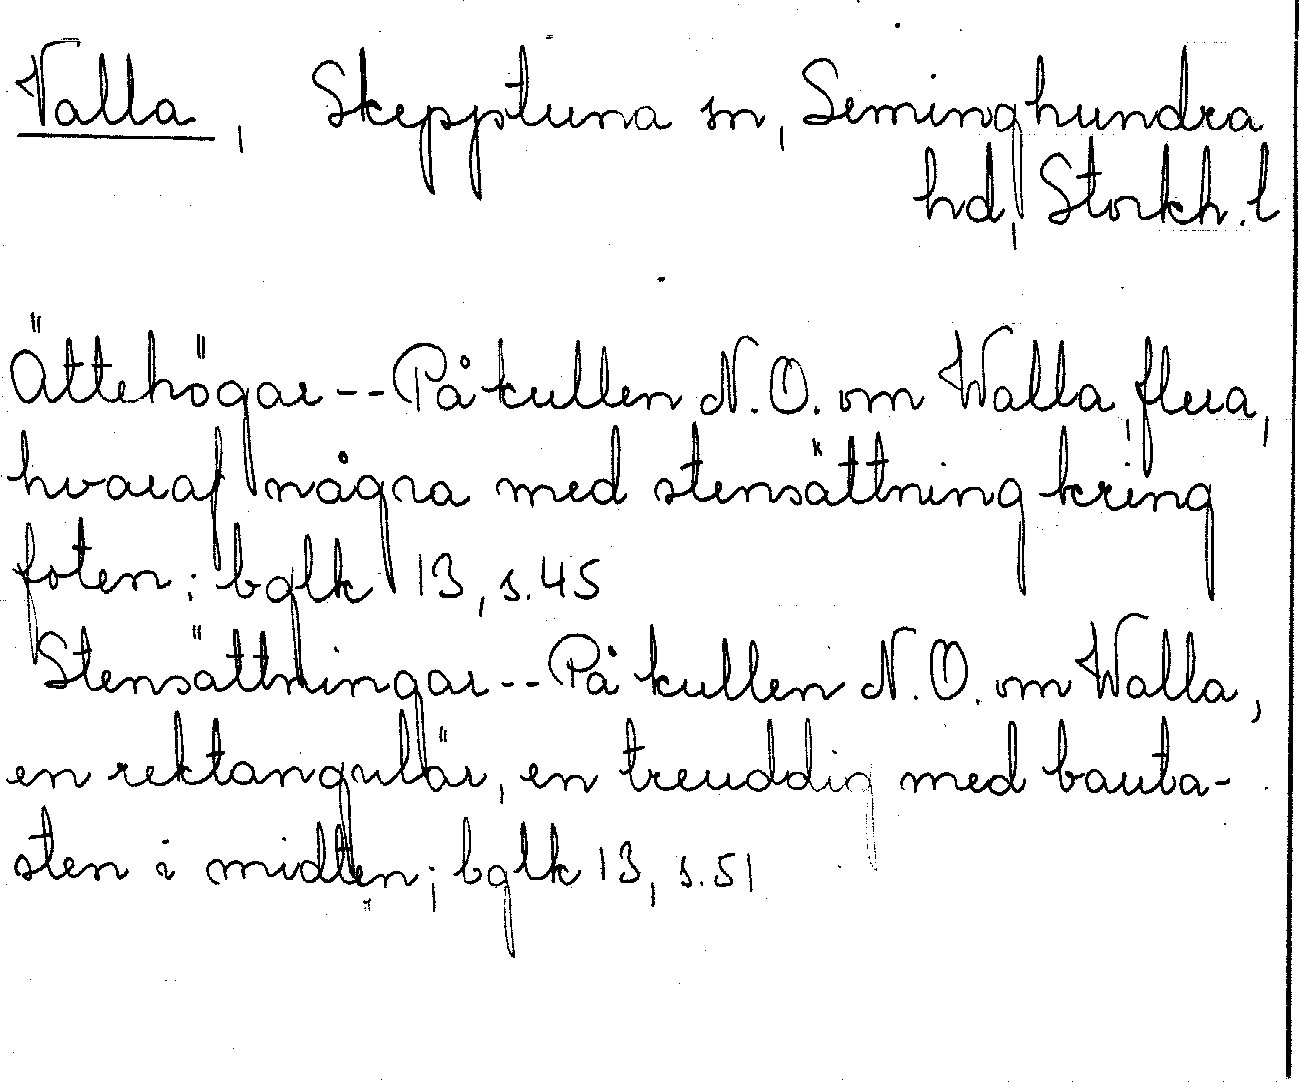 Valla, Skepptuna sn, Seminghundra
hd, Storkh. l
Ättehögar -- På kullen N.O. om Walla, flera,
hvaraf några med stensättning kring
foten; bglk 13, s. 45
Stensättningar -- På kullen N.O. om Walla,
en rektangulär, en treuddig med bauta-
sten i midten; bglk 13, s. 51